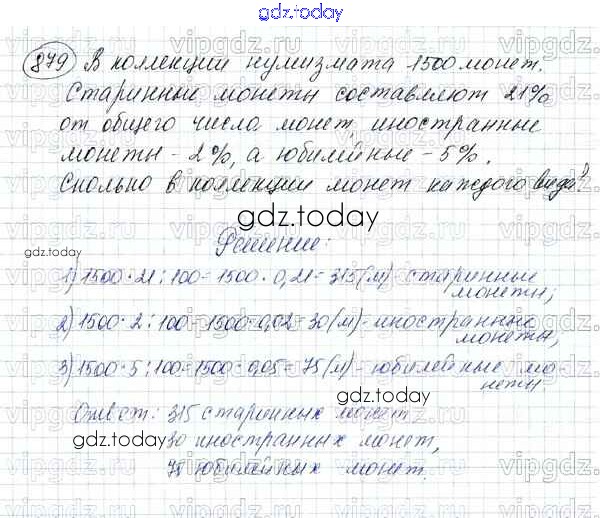 gdz.today
879 В коллекции нумизмата 1500 монет.
Старинные монеты составляют 21%
от общего числа монет, иностранные
монеты - 2%, а юбилейные - 5%.
Сколько в коллекции монет каждого вида?
gdz.today
gdz.today Решение:
1) 1500 · 21 : 100 = 1500 · 0,21 = 315 (м) - старинные
монеты;
2) 1500 · 2 : 100 = 1500 · 0,02 = 30 (м) - иностранные
монеты,
3) 1500 · 5 : 100 = 1500 · 0,05 = 75 (м) - юбилейные мо-
неты
Ответ: 315 старинных монет
gdz.today
30 иностранных монет,
75 юбилейных монет.